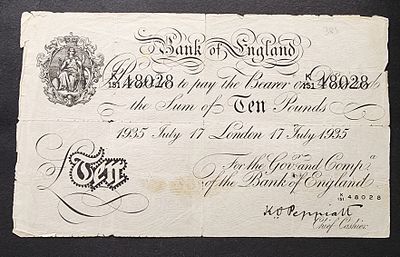 381
Bank of England
K 151 48028 Promise to pay the Bearer on Demand K 151 48028
the Sum of Ten Pounds
1935 July 17 London 17 July 1935
For the Govr. and Compa.
of the Bank of England
£Ten
K 151 48028
K O Peppiatt
Chief Cashier.